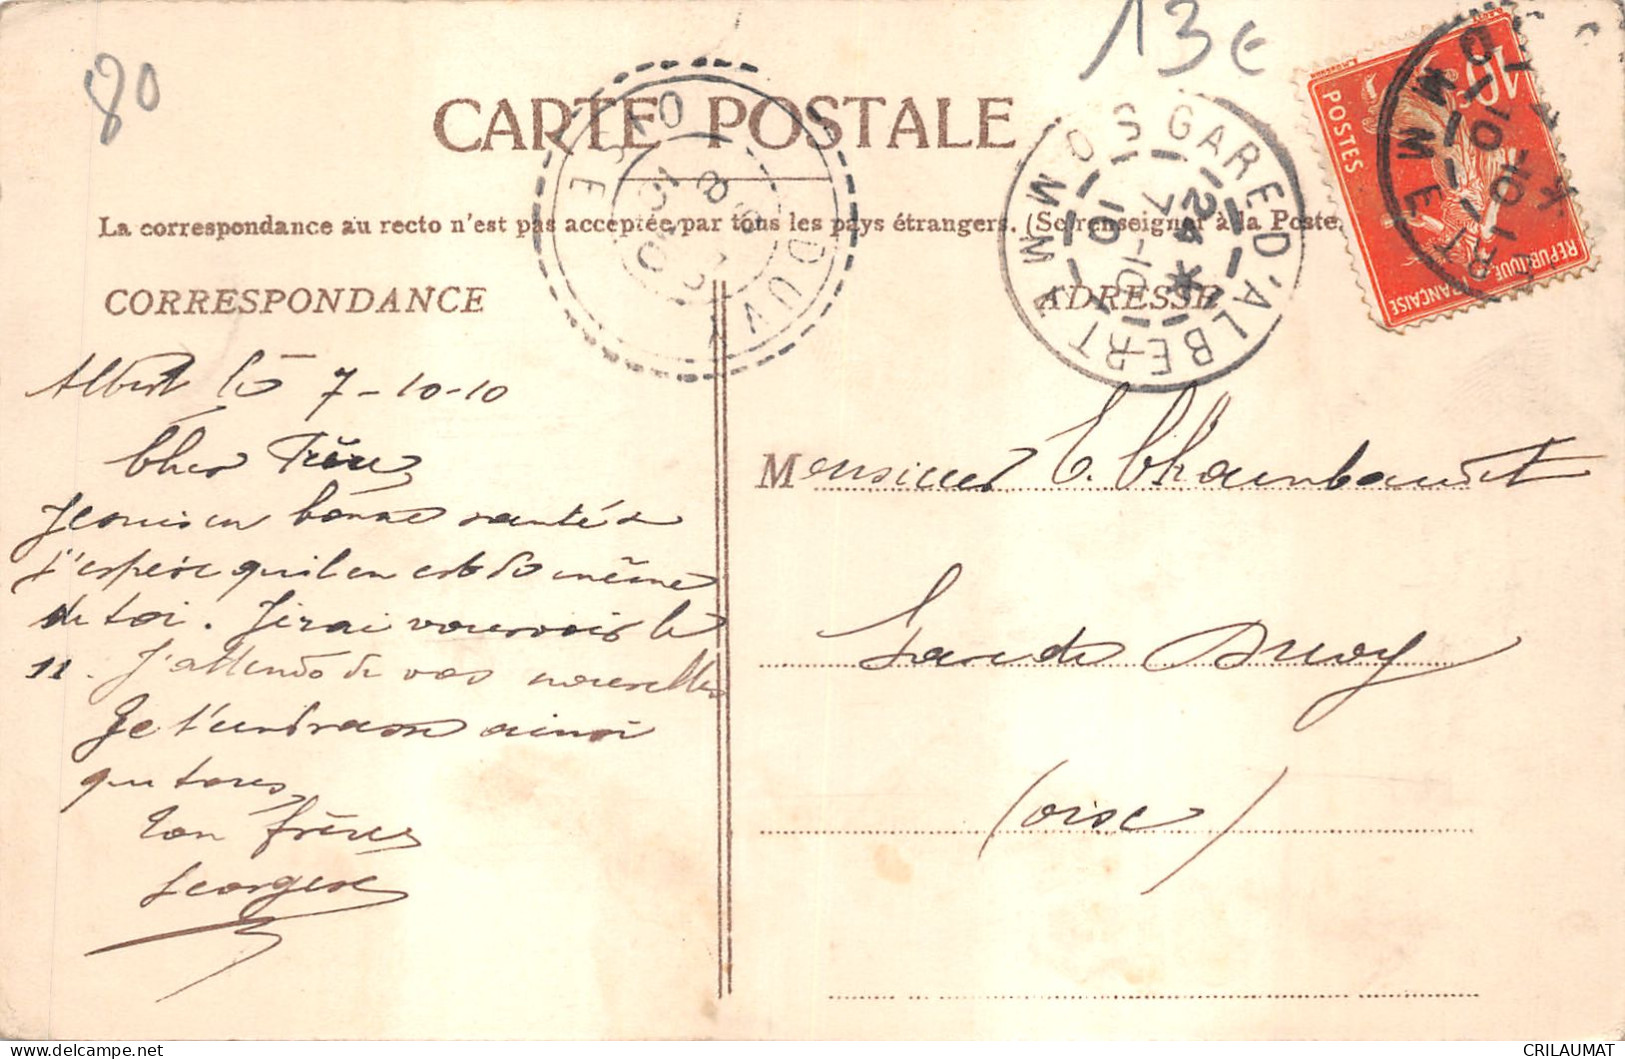 80
13€
CARTE POSTALE
La correspondance au recto n'est pas acceptée par tous les pays étrangers. (Se renseigner à la Poste
CORRESPONDANCE
ADRESSE
GARE D'ALBERT SOMME
7-10
10
POSTES
10
REPUBLIQUE FRANÇAISE
OISE
Albert le 7-10-10
Cher Frère
Je suis en bonne santé &
j'espère qu'il en est de même
de toi. J'irai vous voir le
11. J'attends de vos nouvelles
Je t'embrasse ainsi
que tous
Ton frère
Georges
Monsieur E. Chambaudet
Gare de
(Oise)
CRILAUMAT